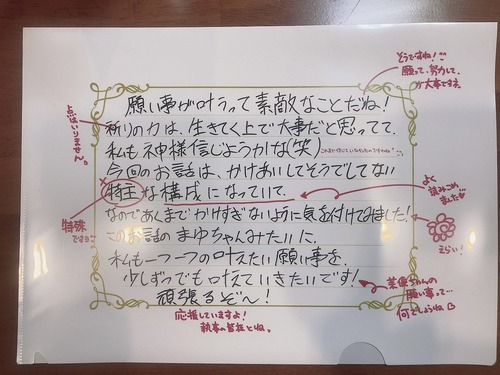 願い事が叶うって素敵なことだね!
祈りの力は、生きてく上で大事だと思ってて、
私も神様信じようかな(笑)
今回のお話は、かけあいしてそうでしてない
特主な構成になっていて、
なのであくまでかけすぎないように気を付けてみました!
このお話のまゆちゃんみたいに、
私も一つ一つの叶えたい願い事を、
少しずつでも叶えていきたいです!
頑張るぞ〜!
そうですね!
願って、努力して、
が大事です。
点はいりません。
特殊
です
よく
読みこめ
ました
えらい!
願い事って…
何でしょうね
応援していますよ!